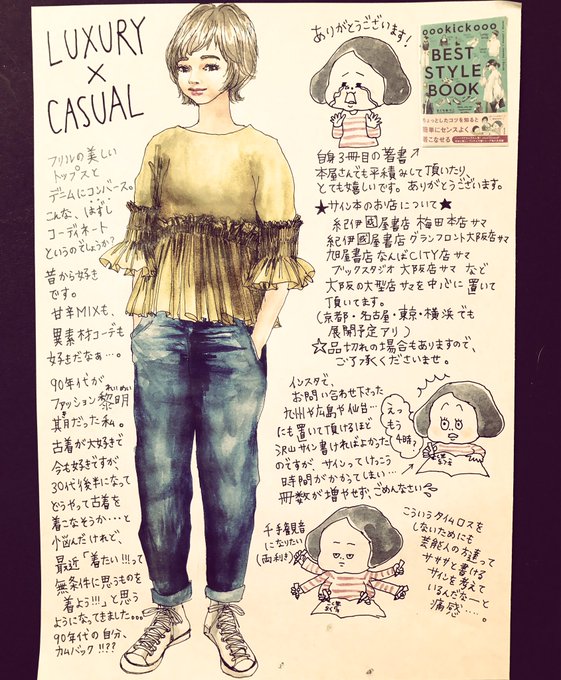 LUXURY
×
CASUAL
フリルの美しい
トップスと
デニムにコンバース。
こんな、はずし
コーディネート
というのでしょうか?
昔から好き
です。
甘辛MIXも、
異素材コーデも
好きだなぁ…。
90年代が
ファッション黎明
れいめい
期だった私。
古着が大好きで
今も好きですが、
30代後半になって
どうやって古着を
着こなそうか・・・と
悩んだけれど、
最近「着たい!!!って
無条件に思うものを
着よう!!!」と思う
ようになってきました。。。
90年代の自分、
カムバック!!??
ありがとうございます!
oookickooo
BEST
STYLE
BOOK
ちょっとしたコツを知ると
簡単にセンスよく
着こなせる
自身3冊目の著書
本屋さんでも平積みして頂いたり、
とても嬉しいです。ありがとうございます。
★サイン本のお店について★
紀伊國屋書店 梅田本店サマ
紀伊國屋書店 グランフロント大阪店サマ
旭屋書店 なんばCITY店サマ
ブックスタジオ 大阪店サマ など
大阪の大型店サマを中心に置いて
頂いてます。
(京都・名古屋・東京・横浜でも
展開予定アリ)
☆品切れの場合もありますので、
ご了承くださいませ。
インスタで、
お問い合わせ下さった
九州や広島や仙台…
にも置いて頂けるほど
沢山サイン書ければよかった
のですが、サインってけっこう
時間がかかってしまい…
冊数が増やせず、ごめんなさい
えっ
もう
4時?
千手観音
になりたい
(両利き)
こういうタイムロスを
しないためにも
芸能人の方達って
サササと書ける
サインを考えて
いるんだなーと
痛感…。